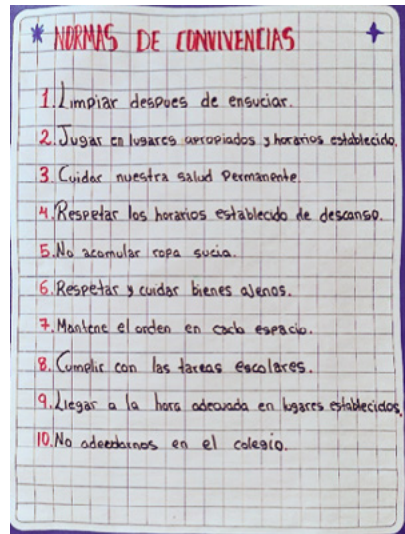 * NORMAS DE CONVIVENCIAS
1. Limpiar despues de ensuciar.
2. Jugar en lugares apropiados y horarios establecido.
3. Cuidar nuestra salud Permanente.
4. Respetar los horarios establecido de descanso.
5. No acomular ropa sucia.
6. Respetar y cuidar bienes ajenos.
7. Mantene el orden en cada espacio.
8. Cumplir con las tareas escolares.
9. Llegar a la hora adecuada en lugares establecidos.
10. No en el colegio.